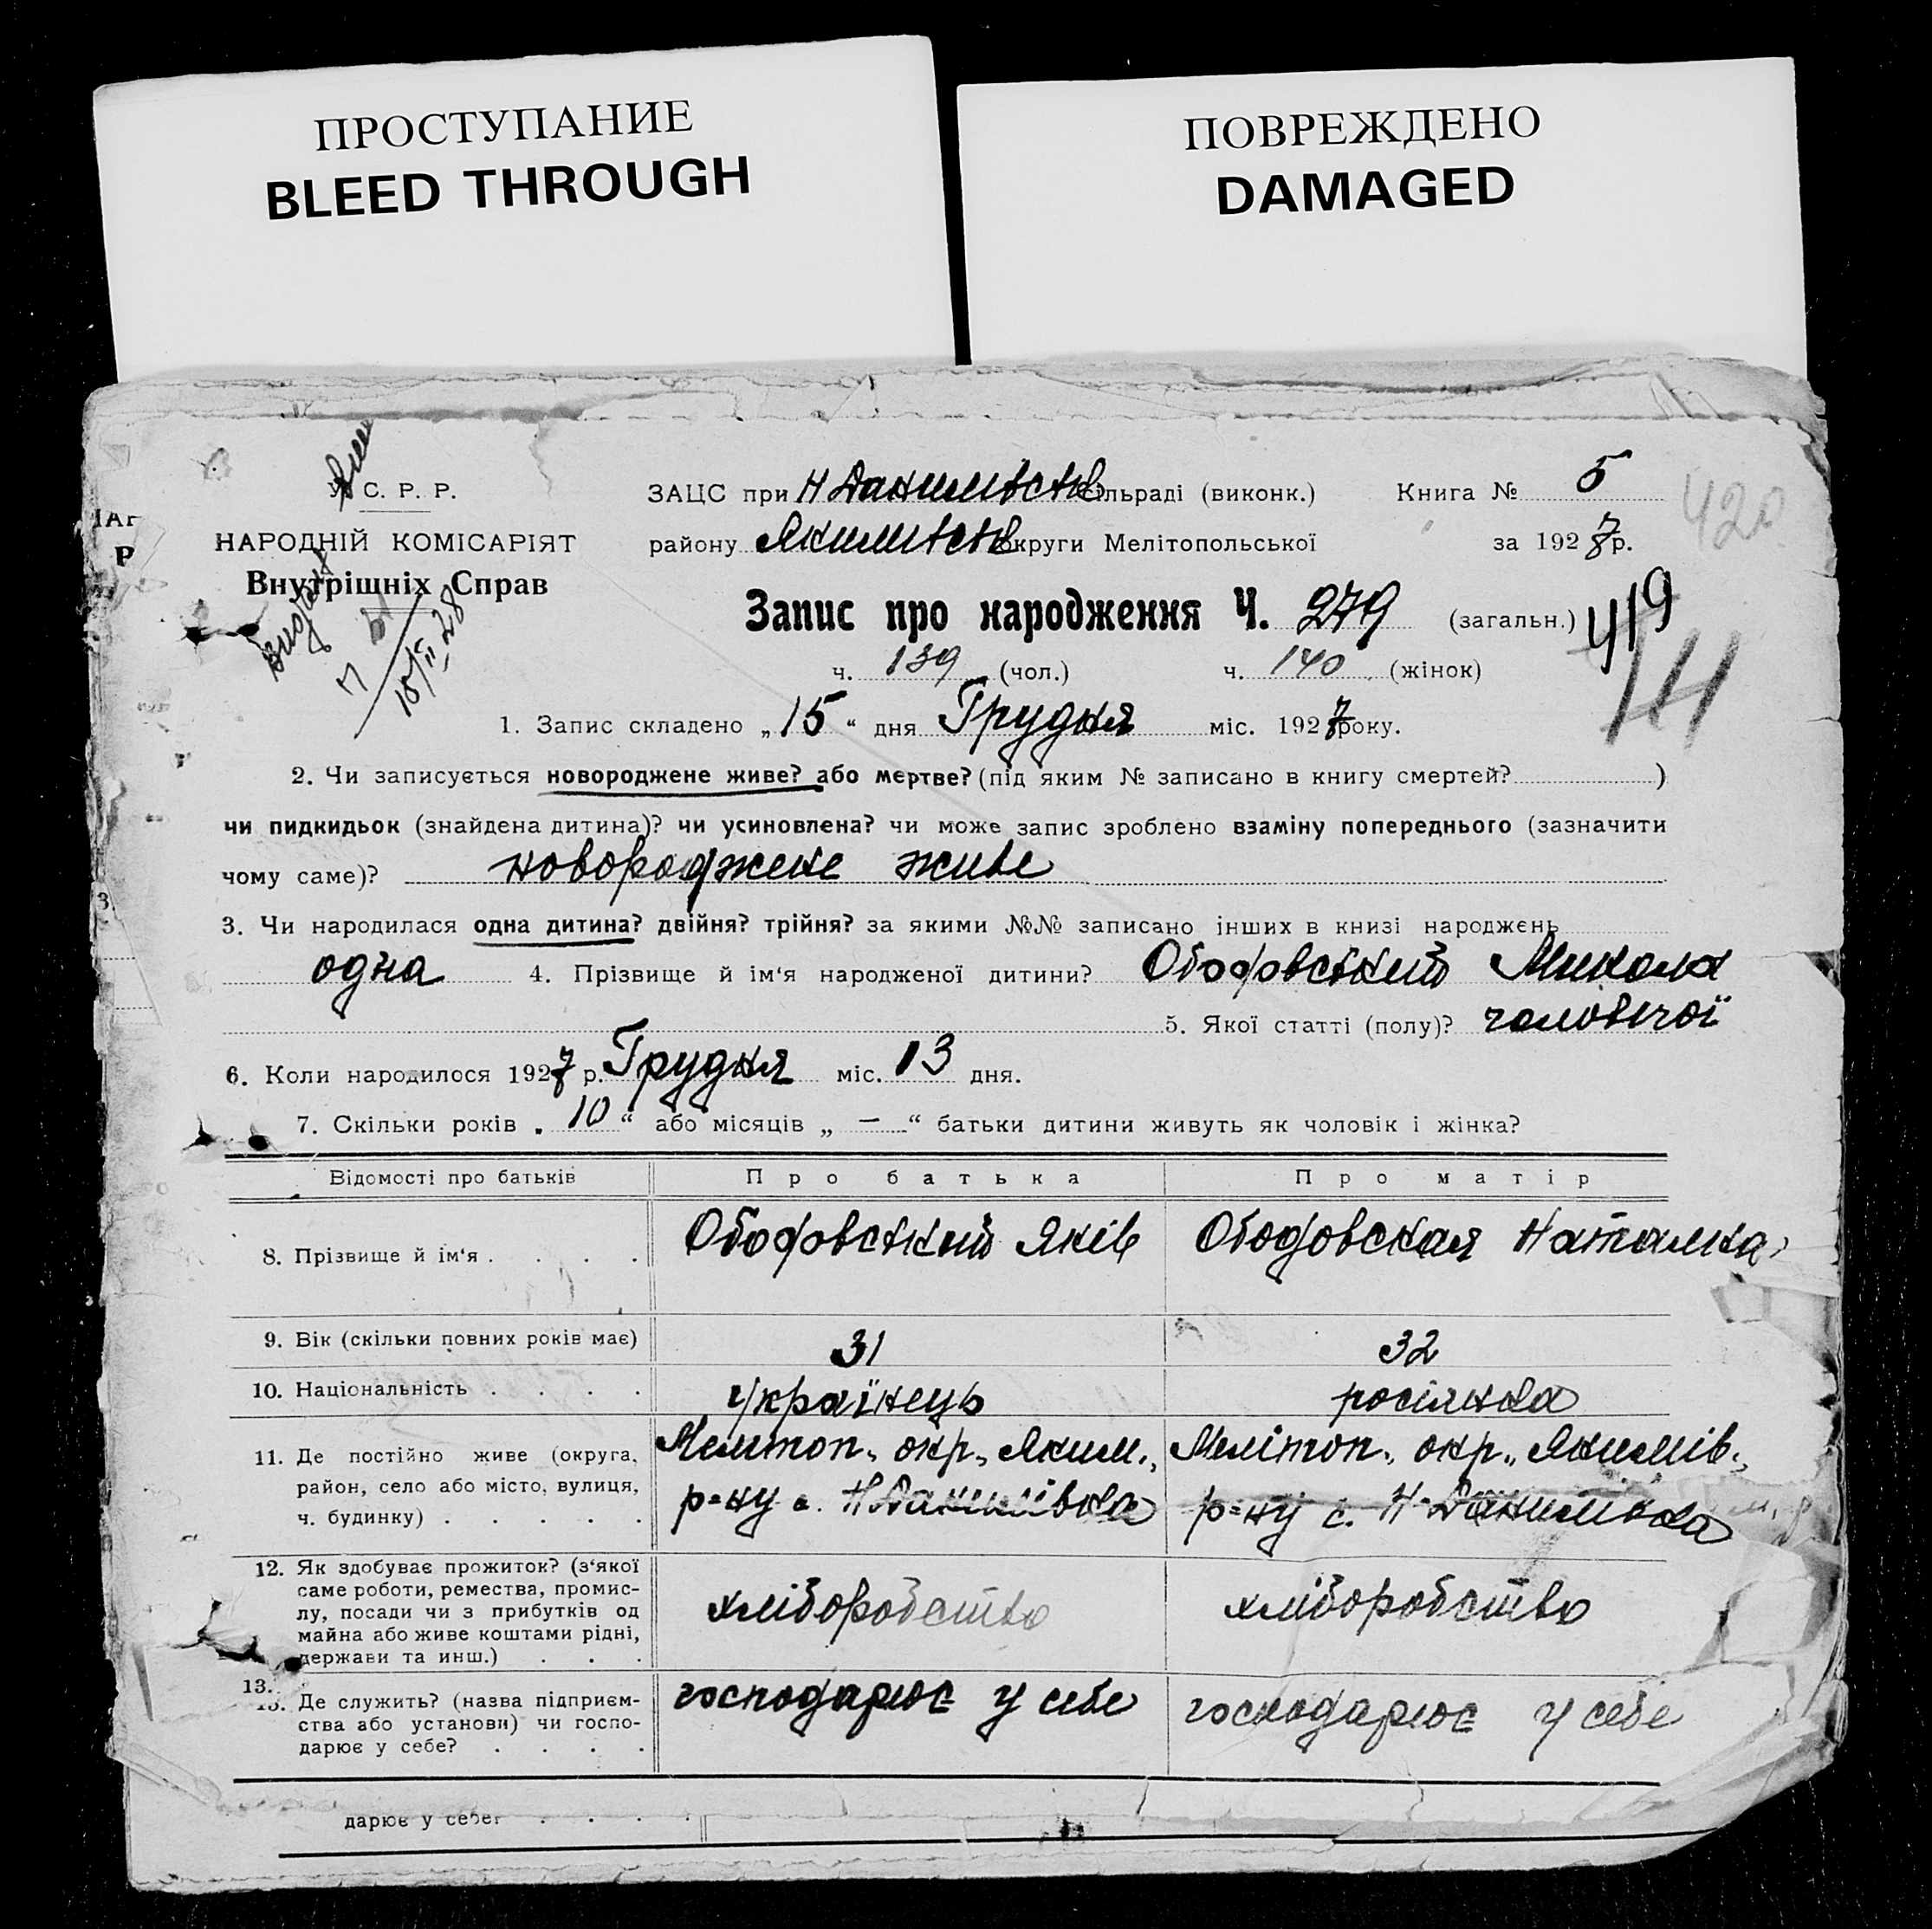 ПРОСТУПАНИЕ
BLEED THROUGH
ПОВРЕЖДЕНО
DAMAGED
У. С. Р. Р.
НАРОДНІЙ КОМІСАРІЯТ
Внутрішніх Справ
15/II 28
ЗАЦС при Н Данилівськ сільраді (виконк.) Книга № 5
району Якимівськ округи Мелітопольської за 1927 р.
420
Запис про народження Ч. 279 (загальн.) 419
ч. 139 (чол.) ч. 140 (жінок)
1. Запис складено „15“ дня Грудня міс. 1927 року.
2. Чи записується новороджене живе? або мертве? (під яким № записано в книгу смертей? )
чи пидкидьок (знайдена дитина)? чи усиновлена? чи може запис зроблено взаміну попереднього (зазначити
чому саме)? новороджене живе
3. Чи народилася одна дитина? двійня? трійня? за якими №№ записано інших в книзі народжень
одна 4. Прізвище й ім‘я народженої дитини? Ободовський Микола
5. Якої статті (полу)? чоловічої
6. Коли народилося 1927 р. Грудня міс. 13 дня.
7. Скільки років „ 10 “ або місяців „ — “ батьки дитини живуть як чоловік і жінка?
Відомості про батьків Про батька Про матір
8. Прізвище й ім‘я . . . . Ободовський Яків Ободовская Наталка
9. Вік (скільки повних років має) 31 32
10. Національність . . . . українець росіянка
11. Де постійно живе (округа, Мелітоп. окр., Яким., Мелітоп. окр., Якимів.,
район, село або місто, вулиця, р-ну с. Н Данилівка р-ну с. Н-Данилівка
ч. будинку) . . . . .
12. Як здобуває прожиток? (з‘якої
саме роботи, ремества, промис-
лу, посади чи з прибутків од хліборобство хліборобство
майна або живе коштами рідні,
держави та инш.) . . .
13.
13. Де служить? (назва підприєм- господарює у себе господарює у себе
ства або установи) чи госпо-
дарює у себе? . . . .
дарює у себе? . . . .